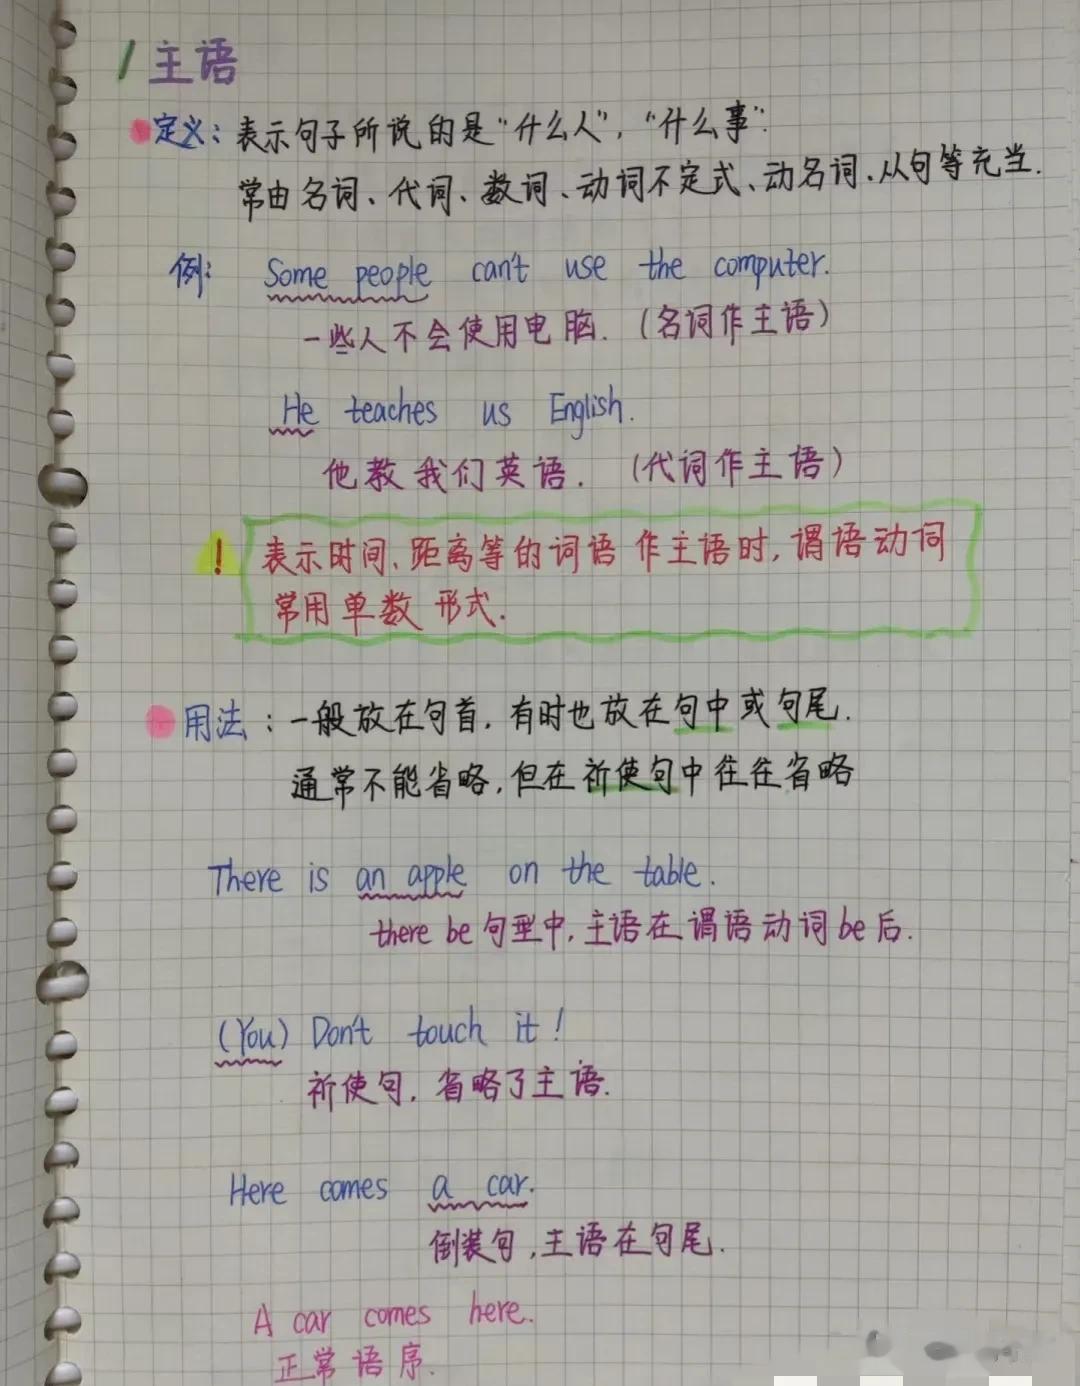 1 主语
定义：表示句子所说的是“什么人”，“什么事”.
常由名词、代词、数词、动词不定式、动名词、从句等充当.
例： Some people can't use the computer.
一些人不会使用电脑.（名词作主语）
He teaches us English.
他教我们英语.（代词作主语）
! 表示时间、距离等的词语作主语时，谓语动词
常用单数形式.
用法：一般放在句首，有时也放在句中或句尾.
通常不能省略，但在祈使句中往往省略
There is an apple on the table.
there be 句型中，主语在谓语动词be后.
(You) Don't touch it!
祈使句，省略了主语.
Here comes a car.
倒装句，主语在句尾.
A car comes here.
正常语序.